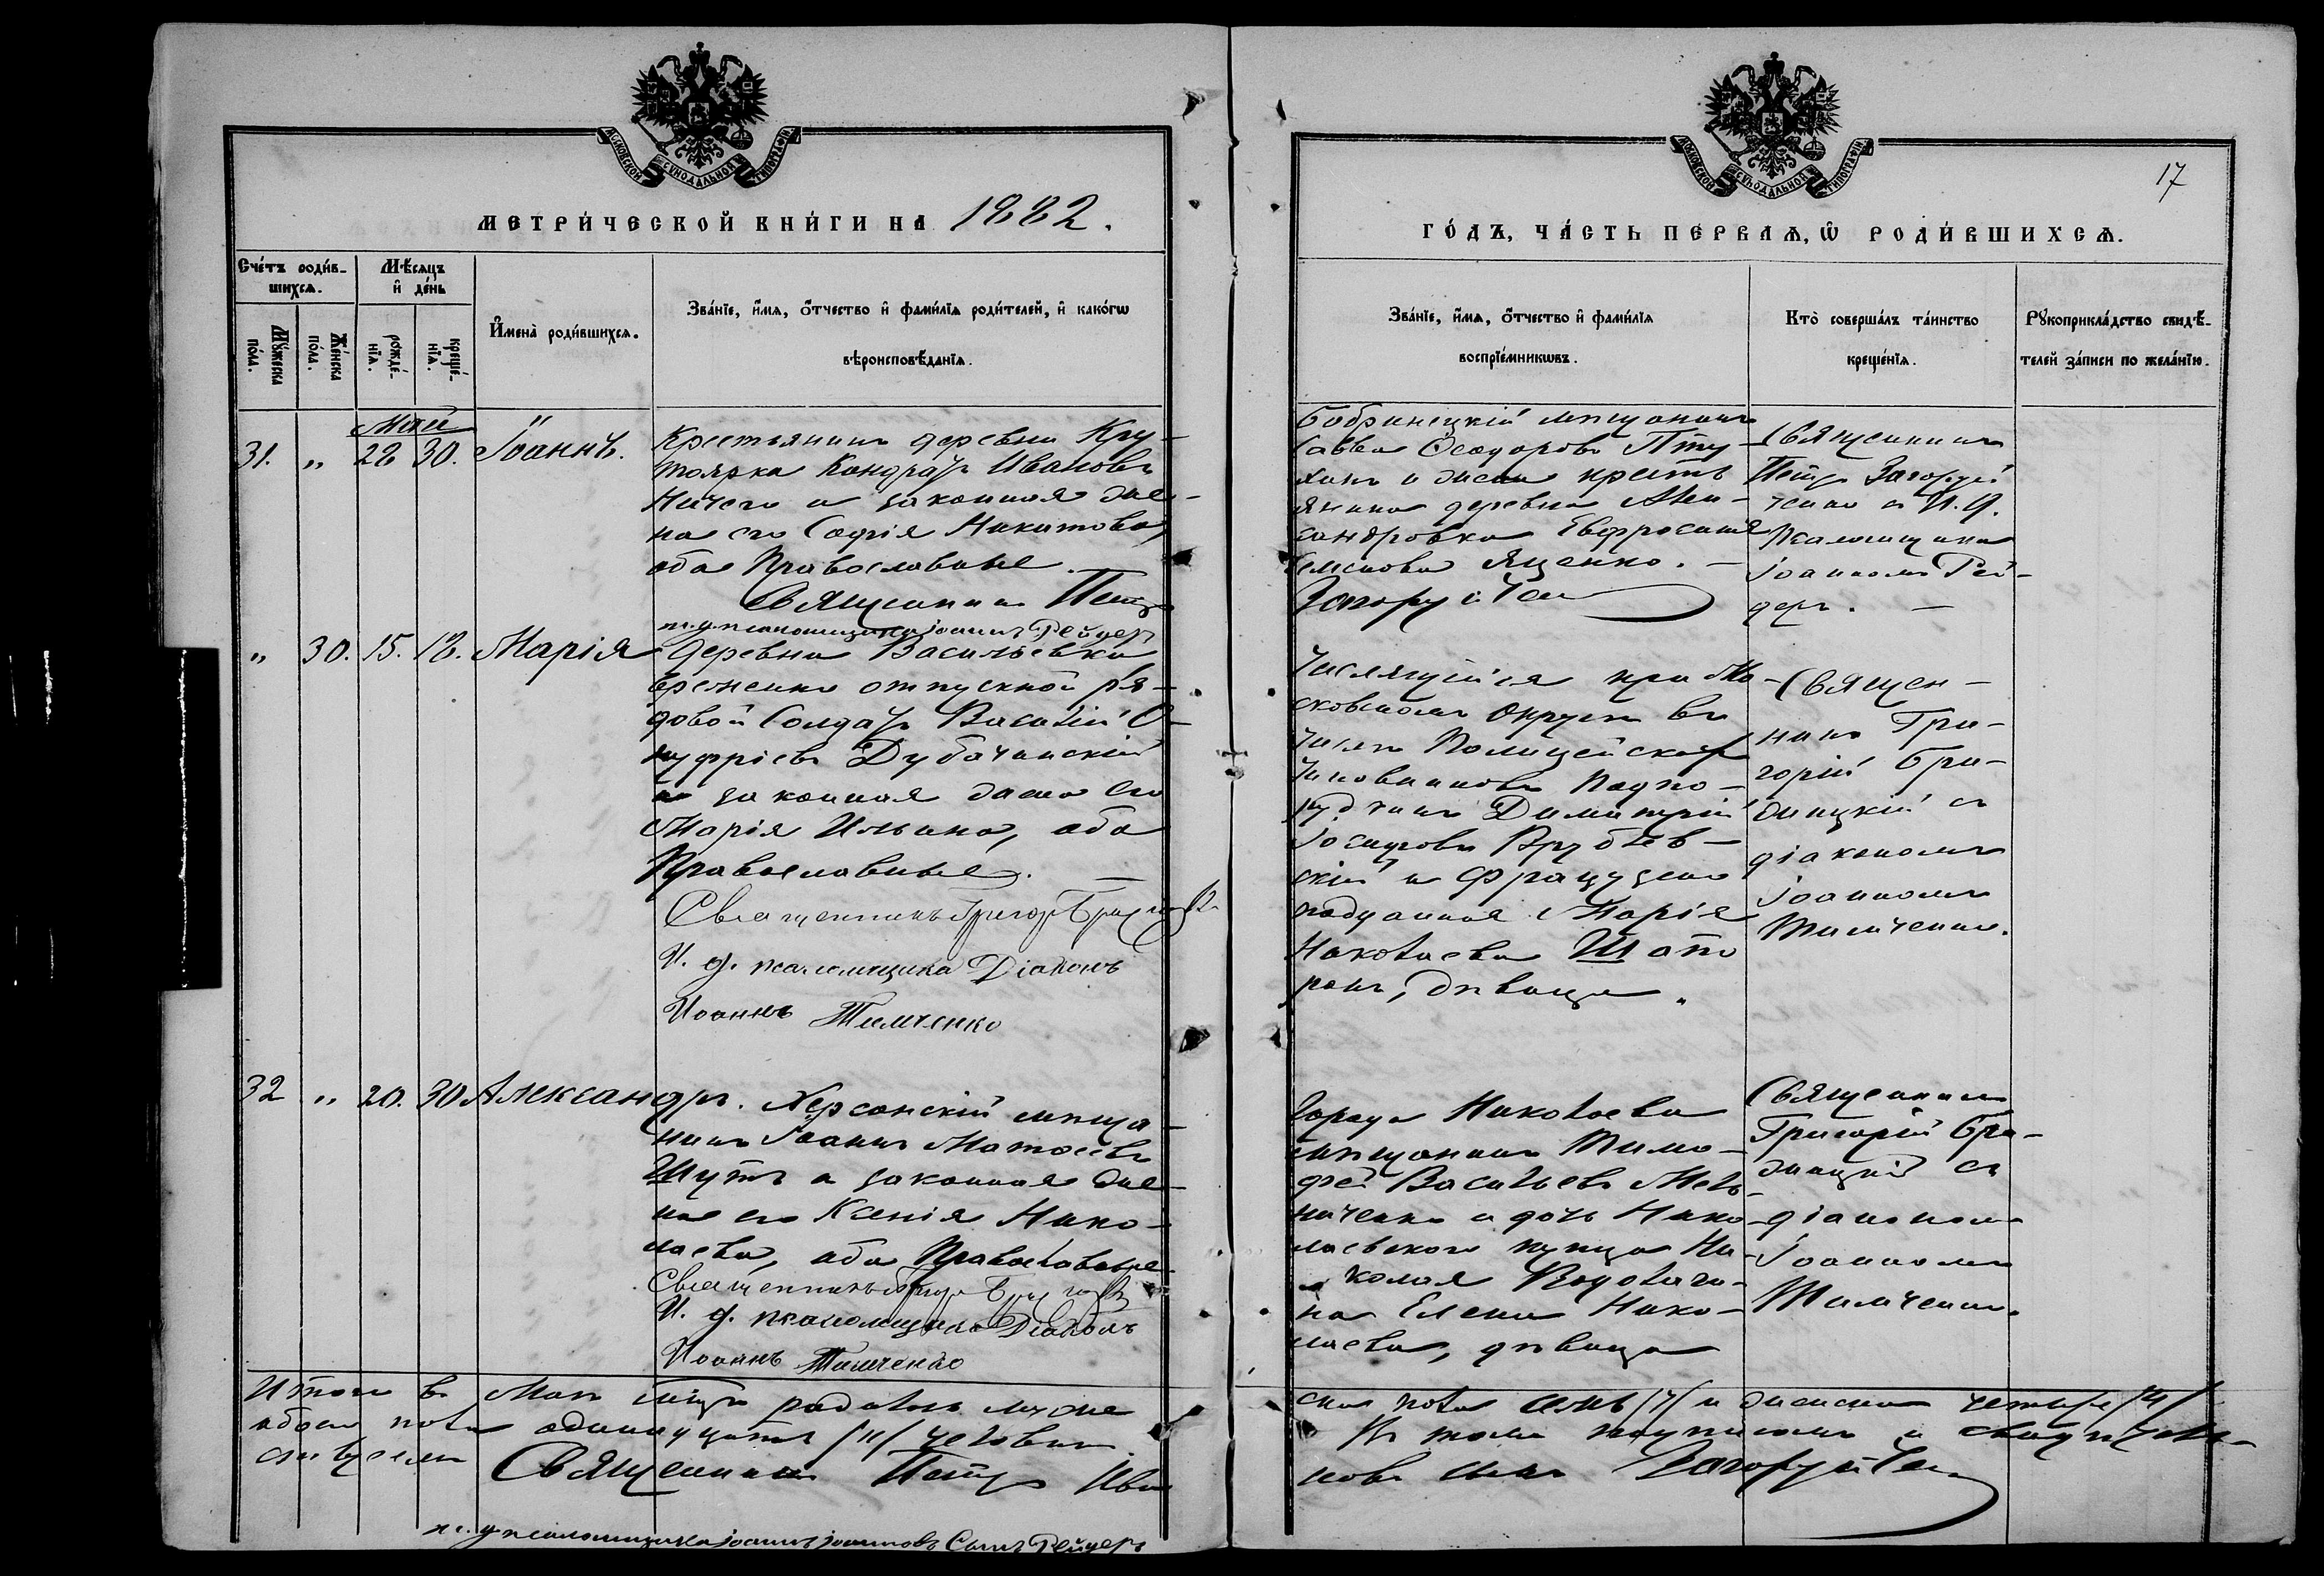 МОСКОВСКОЙ СУНОДАЛЬНОЙ ТИПОГРАФІИ
МЕТРИ́ЧЕСКОЙ КНИ́ГИ НА 1882.
Сче́тъ роди́в-
шихсѧ.
Мѣ́сѧцъ
и҆ де́нь
Мꙋ́жеска
по́ла.
Же́нска
по́ла.
рожде́-
нїѧ.
креще́-
нїѧ.
И҆мена̀ роди́вшихсѧ.
Зва́нїе, и҆́мѧ, ѻ҆́тчество и҆ фами́лїѧ роди́телей, и҆ како́гѡ
вѣроисповѣ́данїѧ.
Май
31. " 28 30. Іоаннъ.
Крестьянинъ деревни Кру-
тоярка Кондратъ Ивановъ
и законная же-
на его Софія Никитова,
оба Православные.
Священникъ Петръ
и. д. псаломщика Іоаннъ Рейдеръ
" 30. 15. 18. Марія
Деревни Васильевка
временно отпускной ря-
довой Солдатъ Василій О-
нуфріевъ Дубачинскій
и законная жена его
Марія Ильина, оба
Православные.
Священникъ Григор
И. д. псаломщика Діаконъ
Иоаннъ Тимченко
32 " 20. 30 Александръ.
Херсонскій мѣща-
нинъ Іоаннъ Матѳеевъ
Шутъ и законная же-
на его Ксенія Нико-
лаева, оба Православные.
Священникъ
И. д. псаломщика Діаконъ
Иоаннъ Тимченко
Итого въ Маѣ мѣсяцѣ родилось муже
обоего пола одинадцать /11/ человѣкъ.
Священникъ Петръ Ива
и. д. псаломщика Іоаннъ Іоанновъ Сынъ Рейдеръ
МОСКОВСКОЙ СУНОДАЛЬНОЙ ТИПОГРАФІИ
17
ГО́ДЪ, ЧА́СТЬ ПЕ́РВАѦ, Ѡ҆ РОДИ́ВШИХСѦ.
Зва́нїе, и҆́мѧ, ѻ҆́тчество и҆ фами́лїѧ
воспрїе́мникѡвъ.
Кто̀ соверша́лъ та́инство
креще́нїѧ.
Рꙋкоприкла́дство свидѣ́-
телей за́писи по жела́нїю.
Бобринецкій мѣщанинъ
Савва Ѳеодоровъ Пту-
хинъ и жена кресть
янина деревни Алек-
сандровка Евфросинія
Семенова Яценко. —
Загоруйченко
Священникъ
Петръ Загоруй
ченко съ И. Д.
Псаломщика
Іоанномъ Рей-
деръ. —
Числящійся при Мо-
сковскомъ округѣ въ
числѣ Полицейскихъ
Чиновниковъ
Димитрій
Іосифовъ Врублев-
скій и Французско
подданная Марія
Николаева Шато
ронъ, дѣвица.
Священ-
никъ Гри-
горій Бри-
дицкій съ
діакономъ
Іоанномъ
Тимченко.
Города Николаева
мѣщанинъ Тимо-
фей Васильевъ Мель-
ниченко и дочь Нико-
лаевского купца Ни-
колая
на Елена Нико-
лаева, дѣвица
Священникъ
Григорій Бри-
дицкій съ
діакономъ
Іоанномъ
Тимченко.
ска пола семь /7/ и женска четыре /4/
Въ томъ подписомъ и свидѣтель-
новъ сынъ Загоруйченко